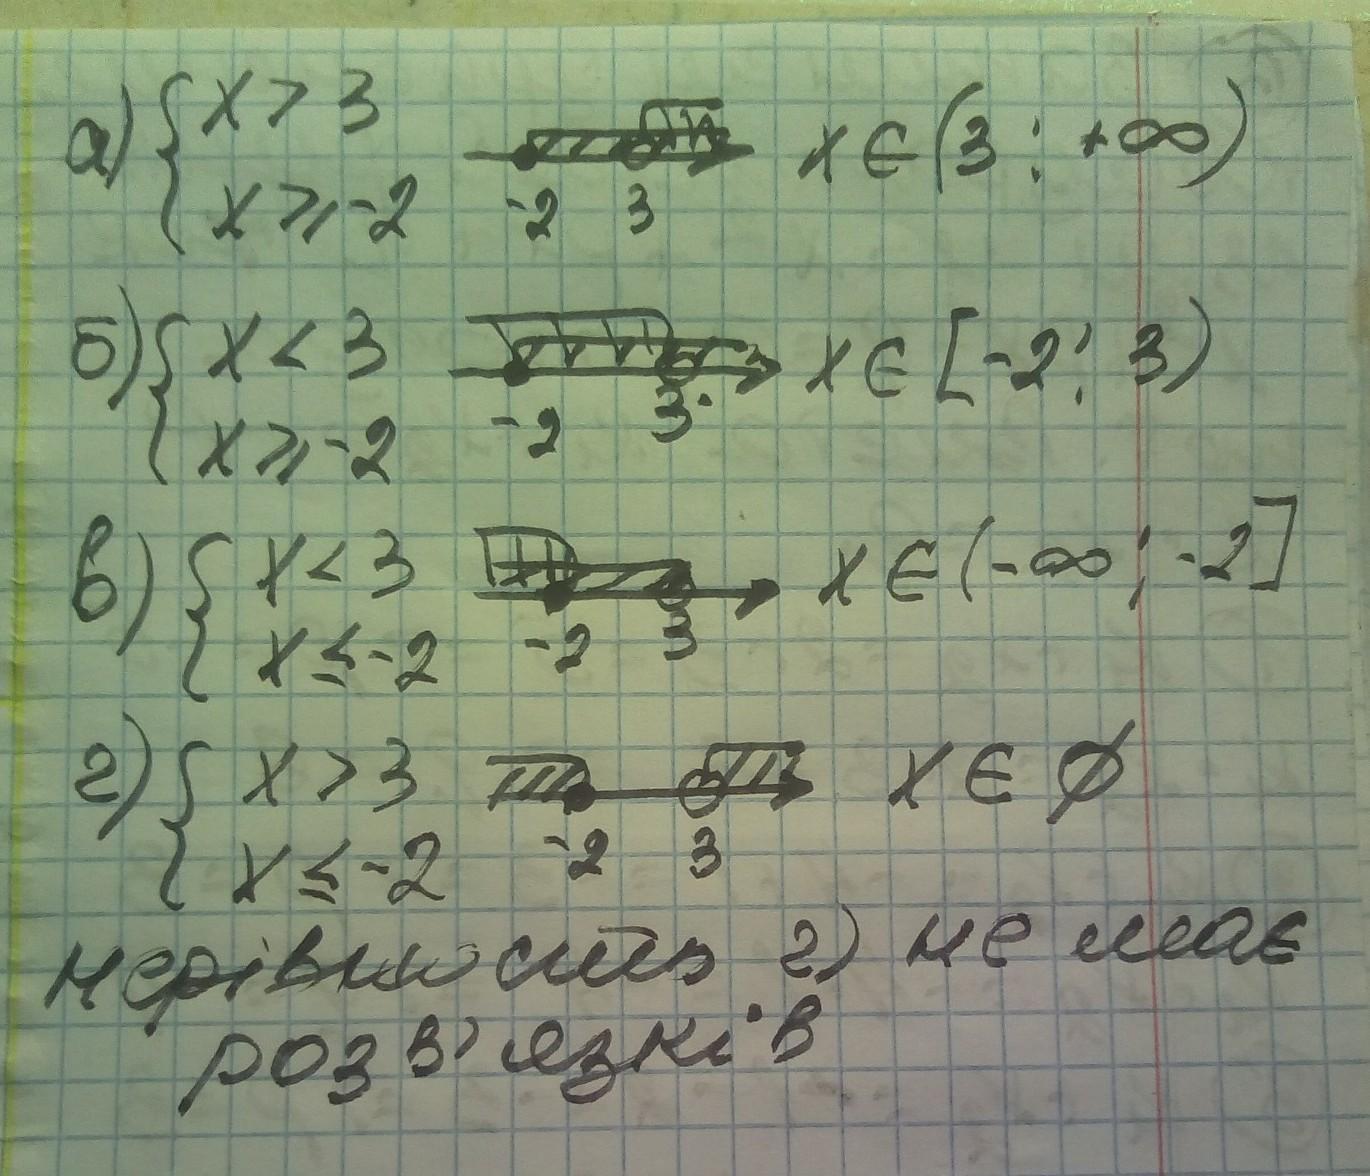 а) { x > 3
x ⩾ -2
-2 3
x ∈ (3 ; +∞)
б) { x < 3
x ⩾ -2
-2 3
x ∈ [-2 ; 3)
в) { x < 3
x ≤ -2
-2 3
x ∈ (-∞ ; -2]
г) { x > 3
x ≤ -2
-2 3
x ∈ ∅
нерівность г) не має
розв'язків